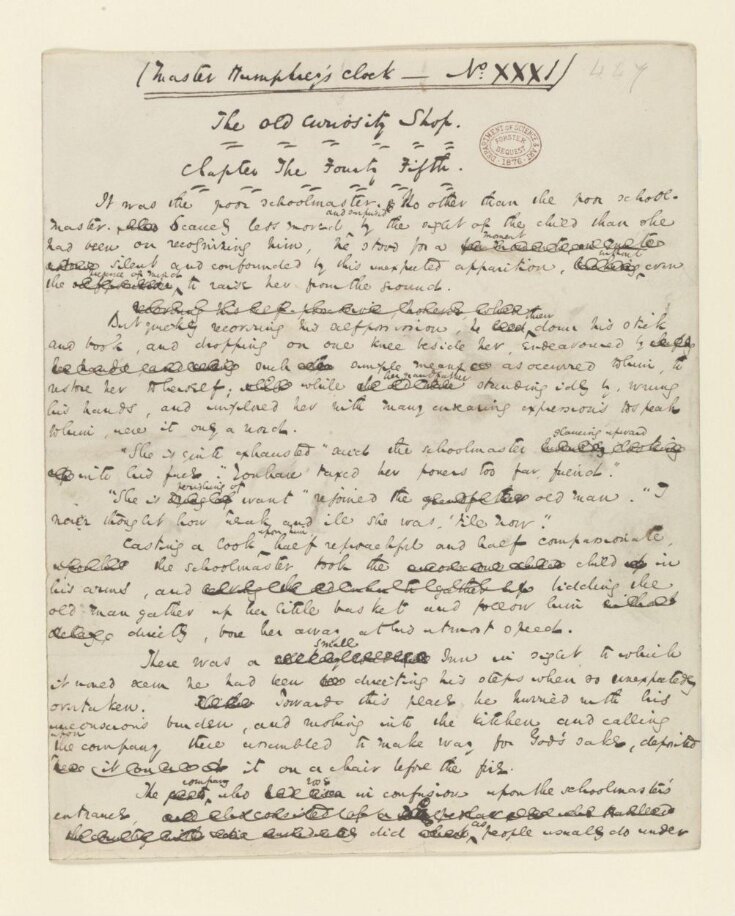 (Master Humphrey's Clock — No. XXXI)
447
The Old Curiosity Shop.
DEPARTMENT OF SCIENCE & ART
FORSTER
BEQUEST
1876
Chapter The Fourty Fifth.
It was the poor schoolmaster. No other than the poor school-
master. Scarcely less moved and surprised by the sight of the child than she
had been on recognizing him, he stood for a moment
silent and confounded by this unexpected apparition, without even
the presence of mind to raise her from the ground.
But quickly recovering his self possession, he threw down his stick
and book, and dropping on one knee beside her, endeavoured by
such simple means as occurred to him, to
restore her to herself; while her grandfather standing idly by, wrung
his hands, and implored her with many endearing expressions to speak
to him, were it only a word.
"She is quite exhausted" said the schoolmaster glancing upward
into his face. "You have taxed her powers too far, friend."
"She is perishing of want" rejoined the old man. "I
never thought how weak and ill she was, 'till now."
Casting a look upon him half reproachful and half compassionate,
the schoolmaster took the child in
his arms, and bidding the
old man gather up her little basket and follow him
directly, bore her away at his utmost speed.
There was a small Inn in sight to which
it would seem he had been directing his steps when so unexpectedly
overtaken. Towards this place he hurried with his
unconscious burden, and rushing into the kitchen and calling
upon the company there assembled to make way for God's sake, deposited
it on a chair before the fire.
The company who rose in confusion upon the schoolmaster's
entrance, did as people usually do under